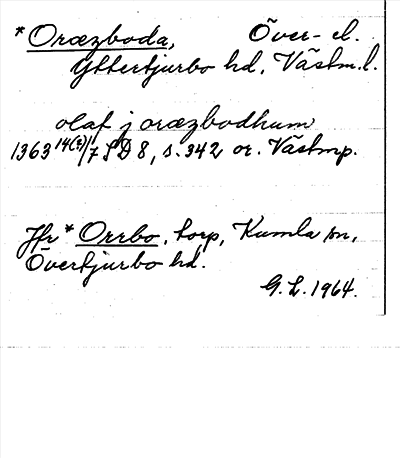 * Oræzboda, Över- el.
Yttertjurbo hd, Västm.l.
olaf j oræzbodhum
1363 14(?)/7 SD 8, s. 342 or. Västmp.
Jfr * Orrbo, torp, Kumla sn,
Övertjurbo hd.
G. L. 1964.